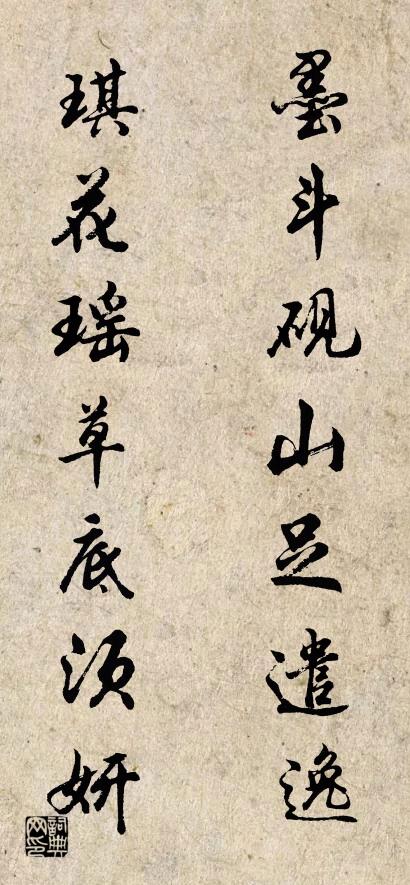 墨斗砚山足遣逸
琪花瑶草底须妍
詞典网印